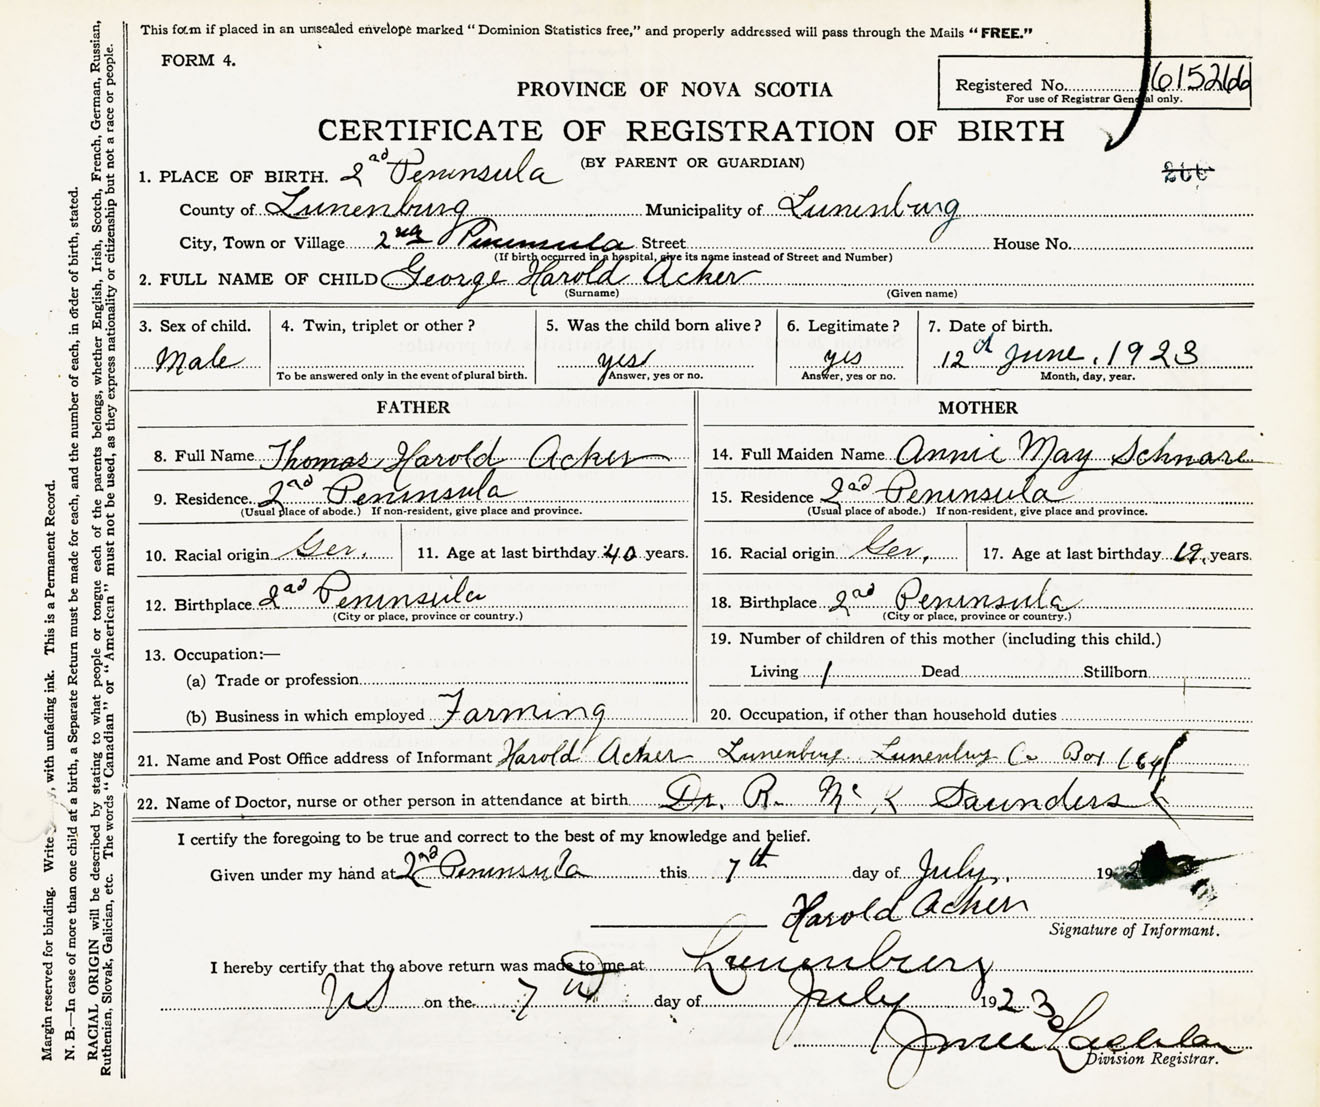 This form if placed in an unsealed envelope marked "Dominion Statistics free," and properly addressed will pass through the Mails "FREE."
FORM 4.
Registered No. 615266
For use of Registrar General only.
PROVINCE OF NOVA SCOTIA
CERTIFICATE OF REGISTRATION OF BIRTH
(BY PARENT OR GUARDIAN)
1. PLACE OF BIRTH. 2nd Peninsula
County of Lunenburg Municipality of Lunenburg
City, Town or Village 2nd Peninsula Street House No.
(If birth occurred in a hospital, give its name instead of Street and Number)
2. FULL NAME OF CHILD George Harold Acker
(Surname) (Given name)
3. Sex of child. 4. Twin, triplet or other? 5. Was the child born alive? 6. Legitimate? 7. Date of birth.
Male yes yes 12th June, 1923
To be answered only in the event of plural birth. Answer, yes or no. Answer, yes or no. Month, day, year.
FATHER MOTHER
8. Full Name Thomas Harold Acker 14. Full Maiden Name Annie May Schnare
9. Residence. 2nd Peninsula 15. Residence 2nd Peninsula
(Usual place of abode.) If non-resident, give place and province. (Usual place of abode.) If non-resident, give place and province.
10. Racial origin Ger. 11. Age at last birthday 40 years. 16. Racial origin Ger. 17. Age at last birthday 19 years.
12. Birthplace 2nd Peninsula 18. Birthplace 2nd Peninsula
(City or place, province or country.) (City or place, province or country.)
13. Occupation:— 19. Number of children of this mother (including this child.)
(a) Trade or profession Living 1 Dead Stillborn
(b) Business in which employed Farming 20. Occupation, if other than household duties
21. Name and Post Office address of Informant Harold Acker Lunenburg Lunenburg Co Box 164
22. Name of Doctor, nurse or other person in attendance at birth Dr. R. Mc K Saunders
I certify the foregoing to be true and correct to the best of my knowledge and belief.
Given under my hand at 2nd Peninsula this 7th day of July, 19
Harold Acker
Signature of Informant.
I hereby certify that the above return was made to me at Lunenburg
NS on the 7th day of July 1923
Division Registrar.
Margin reserved for binding. Write , with unfading ink. This is a Permanent Record.
N. B.—In case of more than one child at a birth, a Separate Return must be made for each, and the number of each, in order of birth, stated.
RACIAL ORIGIN will be described by stating to what people or tongue each of the parents belongs, whether English, Irish, Scotch, French, German, Russian,
Ruthenian, Slovak, Galician, etc. The words "Canadian" or "American" must not be used, as they express nationality or citizenship but not a race or people.